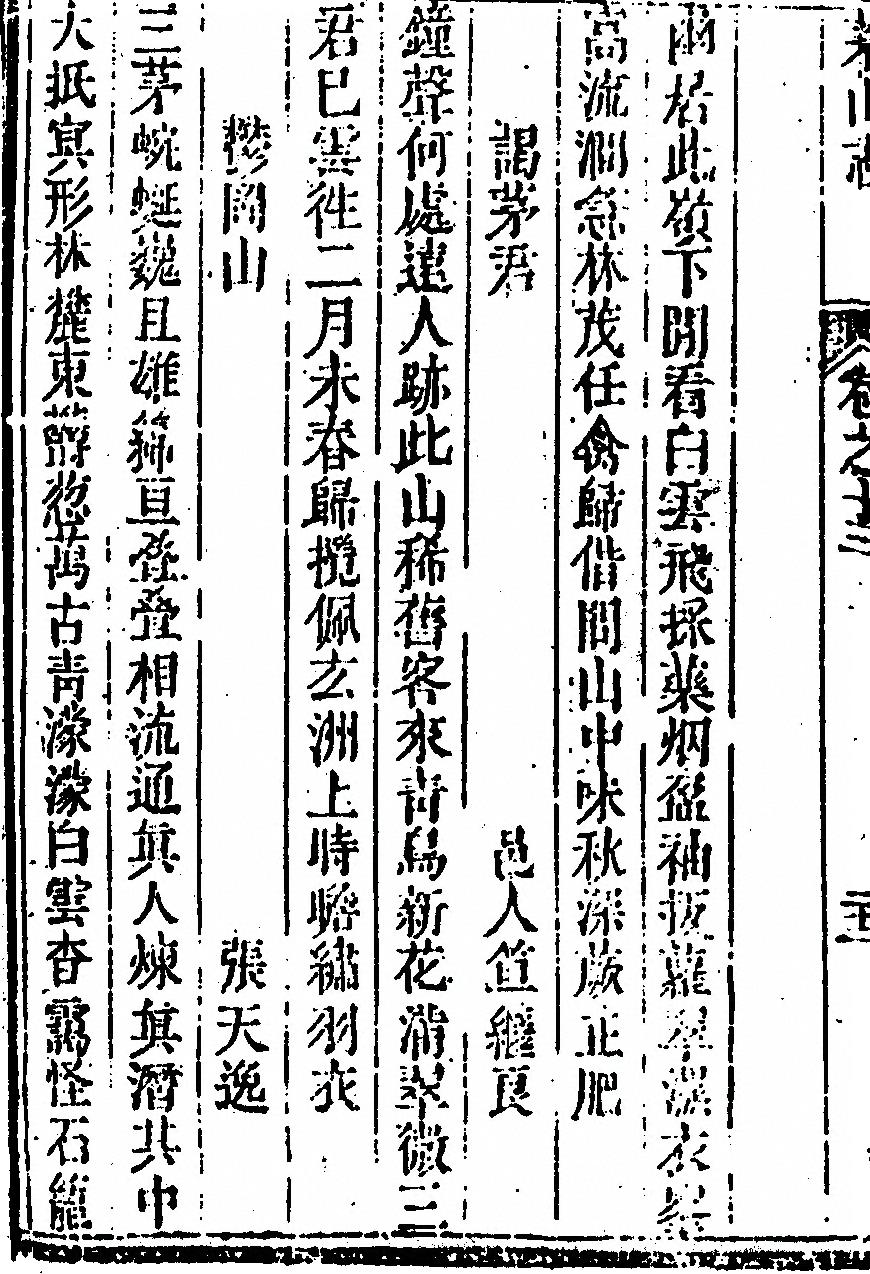 茅山志
卷之十三
爾居此嶺下閒看白雲飛採藥烟盈袖拔蘿翠濕衣
高流澗急林茂任禽歸偕問山中味秋深蕨正肥
謁茅君
邑人笪繼良
鐘聲何處遠人跡此山稀舊客來青鳥新花滿翠微三
君已雲往二月未春歸攬佩玄洲上時瞻繡羽衣
楚岡山
張天逸
三茅蜿蜒巍且雄
亘叠叠相流通真人煉真潛其中
大抵寞形林麓東
欝愁萬古青濛濛白雲杳靄怪石籠